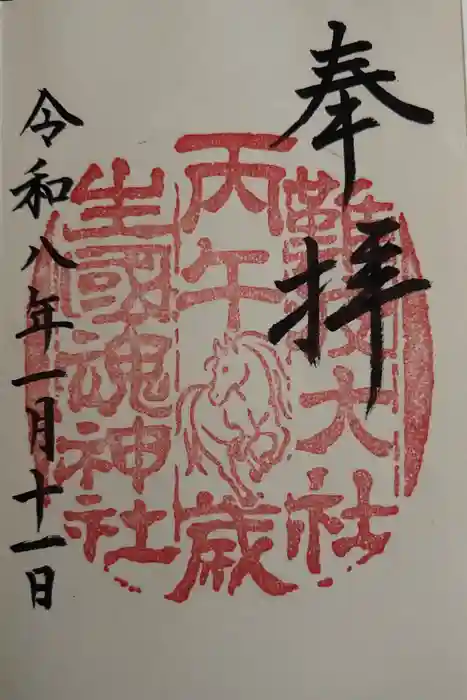 奉拝
難波大社
丙午歳
生國魂神社
令和八年一月十一日